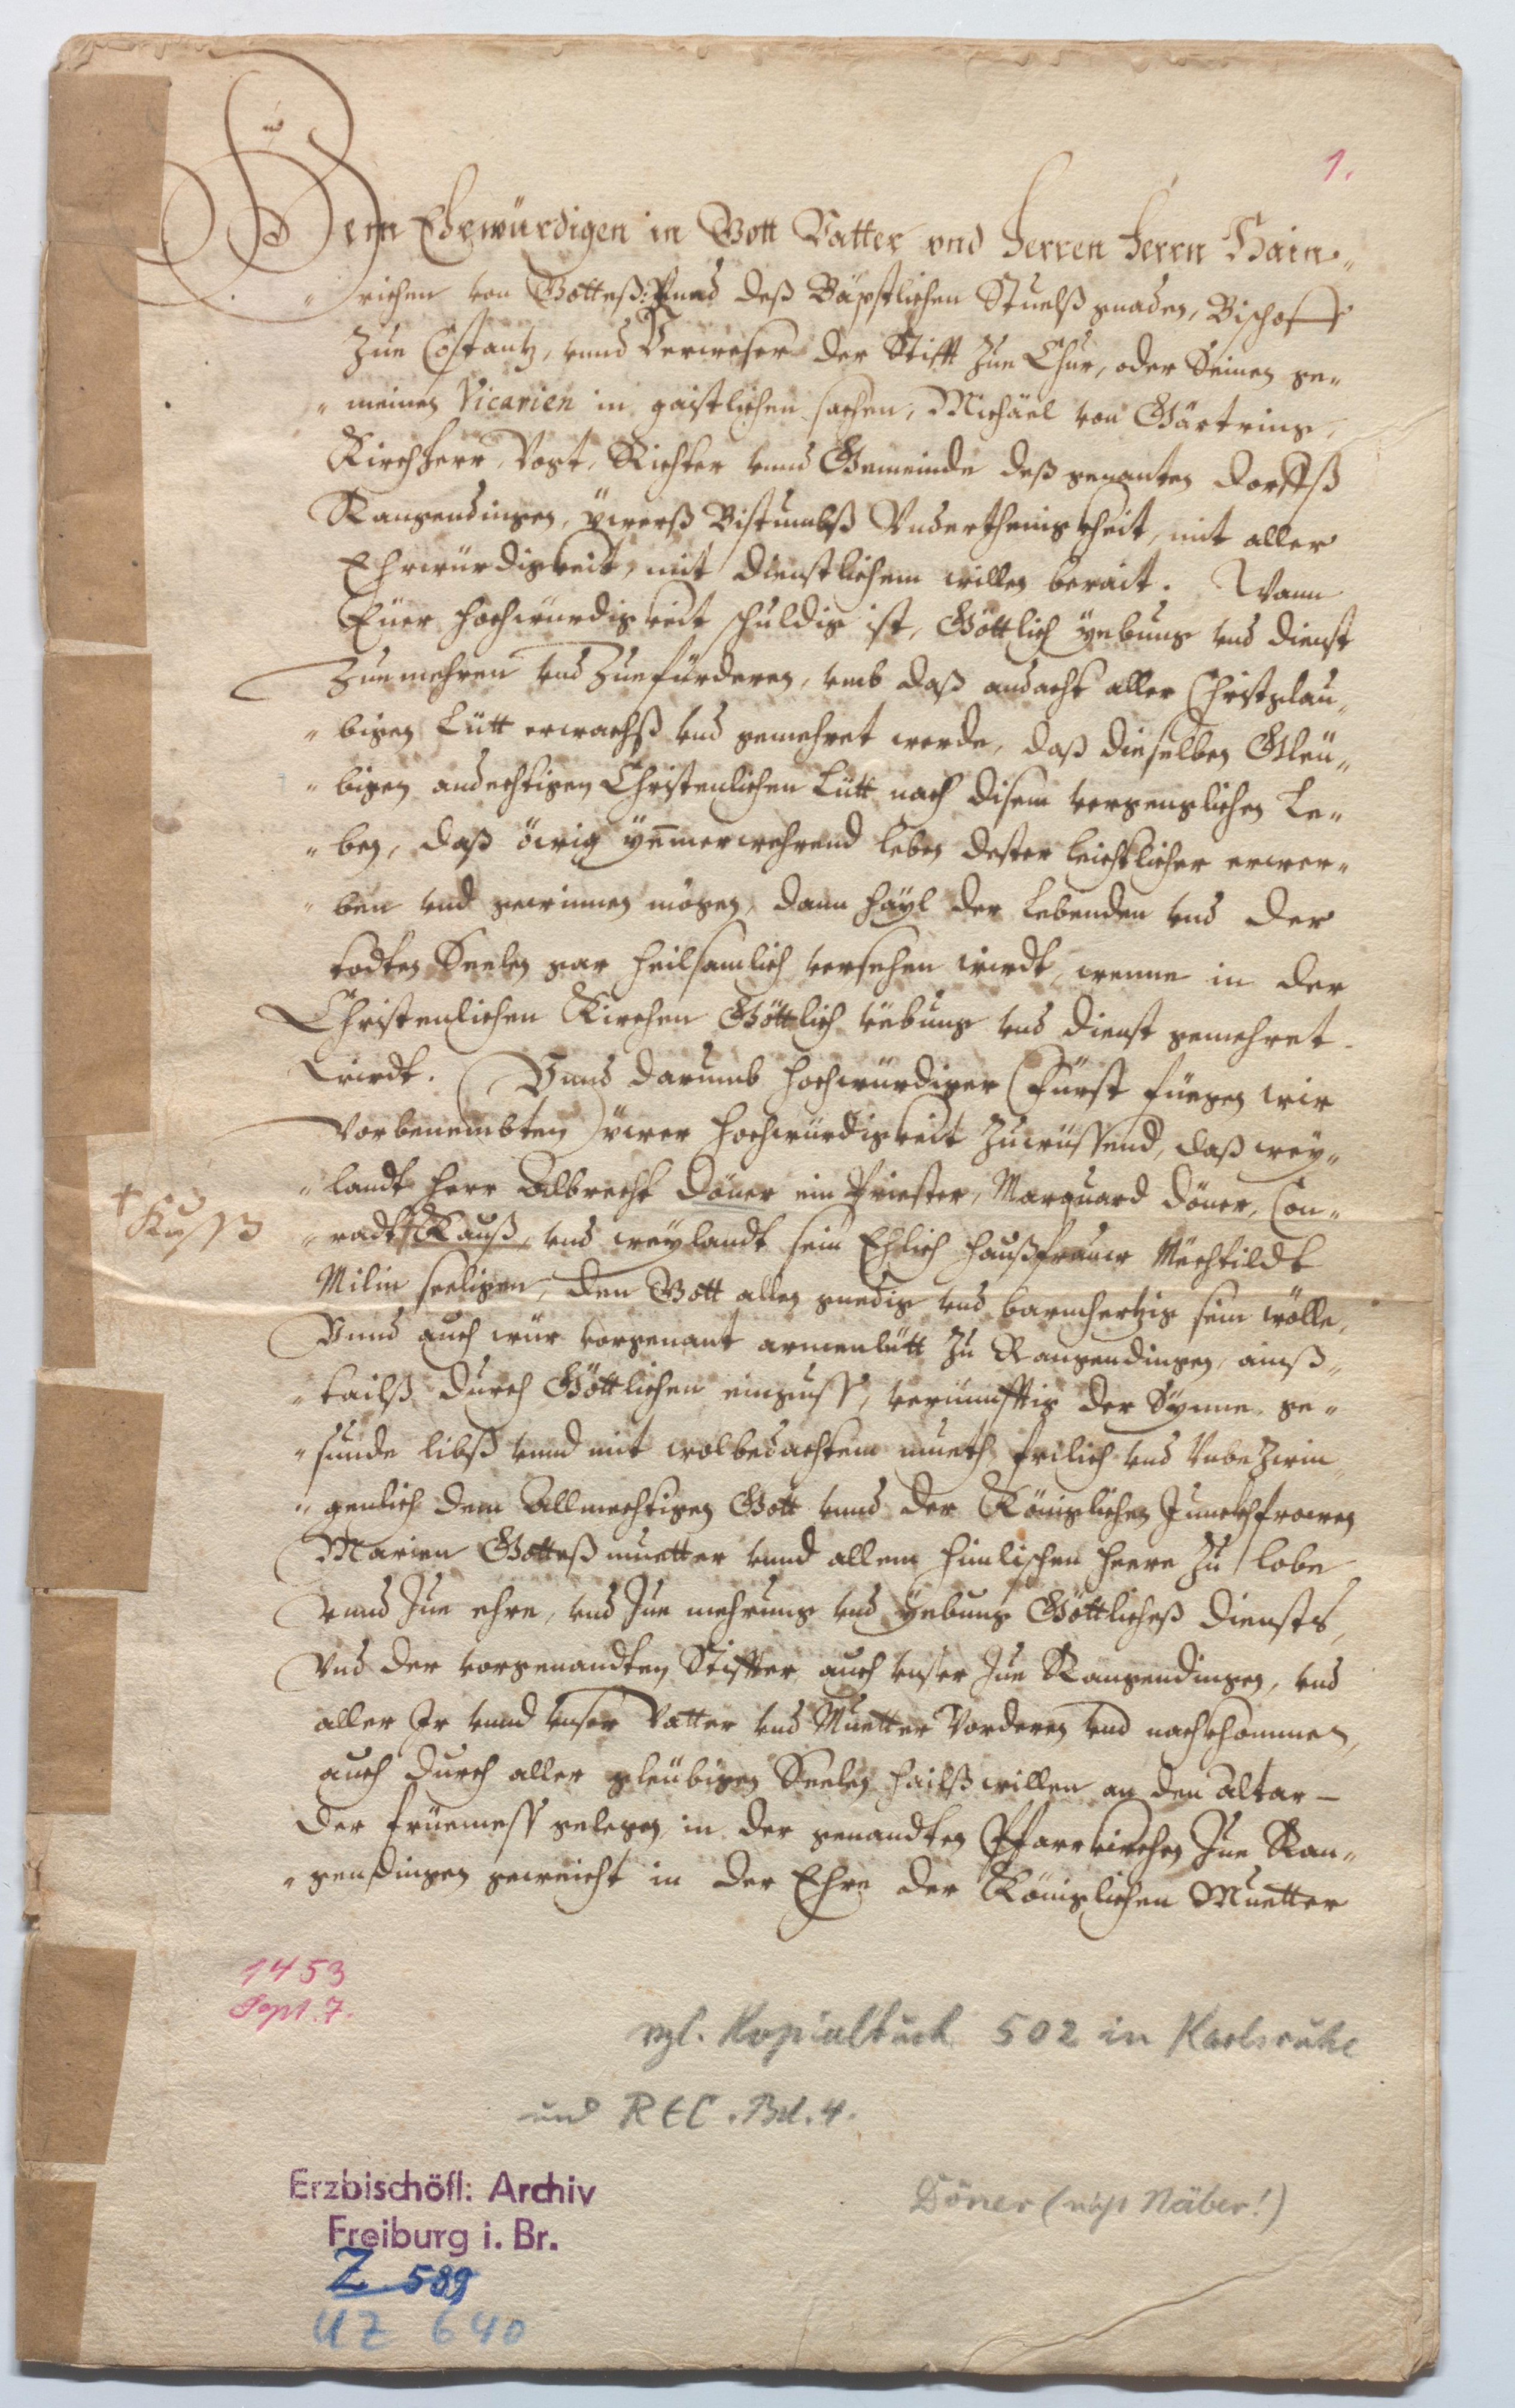 1.
Dem Ehrwürdigen in Gott Vatter vnd Herren Herrn Hain„
„richen von Gotteß: vnnd deß Bäpstlichen Stuelß gnaden, Bischoff
Zue Costantz, vnnd Verweser der Stifft Zue Chur, oder Seinen ge„
„meinen Vicarien in gaistlichen sachen, Michäel von Gärtring,
Kirchherr, Vogt, Richter vnnd Gemeinde deß genanten dorffß
Rangendingen, ÿwerß Bistumbß Vnderthenigkheit, mit aller
Ehrwürdigkeit, mit dienstlichem willen berait. Wann
Eüer hochwürdigkeit schuldig ist, Göttlich ÿebung vnd dienst
Zuemehren vnd Zuefürderen, vmb daß andacht aller Christglau„
„bigen Lütt erwachß vnd gemehret werde, daß dieselben Gleü„
„bigen andechtigen Christenlichen Lütt nach disem vergenglichen Le„
„ben, daß öwig ÿemerwehrend leben dester leichtlicher erwer„
„ben vnd gewinnen mögen, dann häyl der Lebenden vnd der
todten Seelen gar heilsamlich versehen wirdt, wenne in der
Christenlichen Kirchen Göttlich vebung vnd dienst gemehret
wirdt. Vnnd darumb hochwürdiger Fürst füegen wir
Vorbenembten ÿwer hochwürdigkeit Zuewüssend, daß wey„
„landt Herr Albrecht Döner ein Priester, Marquard Döner, Con„
† Kusß
„radt † Kauß, vnd weylandt sein Ehlich haußfrauw Mechtildt
Milin seeligen, den Gott allen gnedig vnd barmhertzig sein wölle,
Vnnd auch wür vorgenant armenlütt Zu Rangendingen, ainß„
„tailß durch Göttlichen einguss, vernünfftig der Synne, ge„
„sunde libß vnnd mit wolbedachtem mueth frilich vnd Vnbezwin„
„genlich dem Allmechtigen Gott vnnd der Königlichen Junckhfrowen
Marien Gotteß muetter vnnd allem himlischen Heere Zu lobe
vnnd Zue ehre, vnd Zue mehrung vnd ÿebung Göttlicheß diensts,
Vnd der vorgenandten Stiffter auch vnser Zue Rangendingen, vnd
aller Ir vnnd vnser Vatter vnd Muetter Vorderen vnd nachkhommen,
auch durch aller gleübigen Seelen hailß willen an den altar
der früemess gelegen in der genandten Pfarrkirchen Zue Ran„
„gendingen geweicht in der Ehre der Königlichen Muetter
1453
Sept. 7.
vgl. Kopialbuch 502 in Karlsruhe
und REC. Bd. 4.
Erzbischöfl: Archiv
Freiburg i. Br.
Döner (nicht Näber!)
Z 589
UZ 640